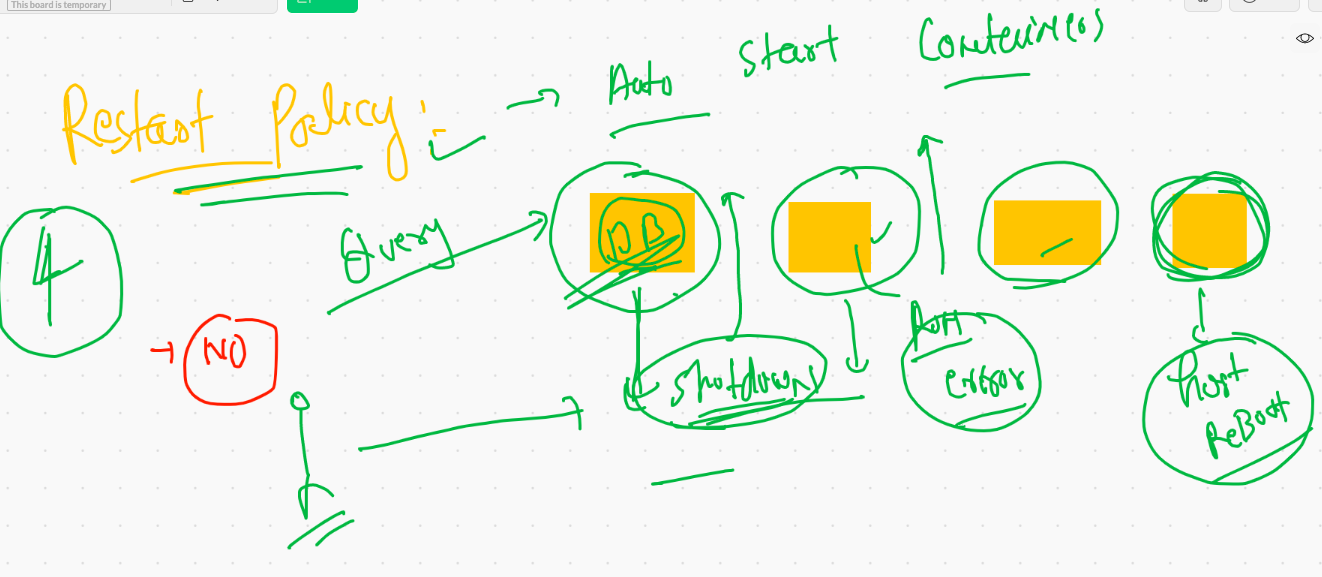 This board is temporary
Restart Policy :-
Auto Start Containers
4
Query
DB
NO
Shutdown
error
host
ReBoot